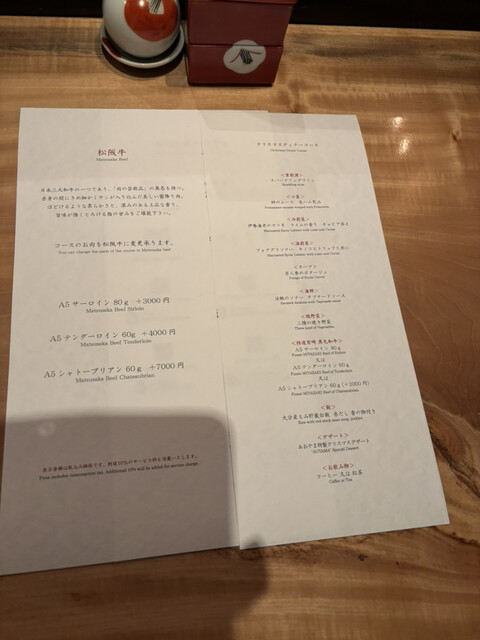 松阪牛
Matsusaka Beef
日本三大和牛の一つであり、「肉の芸術品」の異名を持つ。
赤身の間にきめ細かくサシが入り込んだ美しい霜降り肉。
ほどけるような柔らかさと、深みのある上品な香り、
旨味が強くとろける脂の甘みをご堪能下さい。
コースのお肉を松阪牛に変更承ります。
You can change the meat of the course to Matsusaka beef
A5 サーロイン 80g +3000円
Matsusaka Beef Sirloin
A5 テンダーロイン 60g +4000円
Matsusaka Beef Tenderloin
A5 シャトーブリアン 60g +7000円
Matsusaka Beef Chateaubrian
表示金額は税込み価格です。別途10%のサービス料を頂戴いたします。
Price includes consumption tax. Additional 10% will be added for service charge.
クリスマスディナーコース
Christmas Dinner Course
<食前酒>
スパークリングワイン
Sparkling wine
<小菜>
<冷前菜>
伊勢海老のマリネ ライムの香り キャビア添え
Marinated Spiny Lobster with Lime and Caviar
<温前菜>
<スープ>
<海鮮>
<焼野菜>
三種の焼き野菜
Three kind of Vegetables
<特選宮崎 黒毛和牛>
A5 サーロイン 80g
Finest MIYAZAKI Beef of Sirloin
又は
A5 テンダーロイン 60g
Finest MIYAZAKI Beef of Tenderloin
又は
A5 シャトーブリアン 60g (+1000円)
Finest MIYAZAKI Beef of Chateaubrian
<飯>
<デザート>
あおやま特製クリスマスデザート
"AOYAMA" Special Dessert
<お飲み物>
コーヒー 又は 紅茶
Coffee or Tea